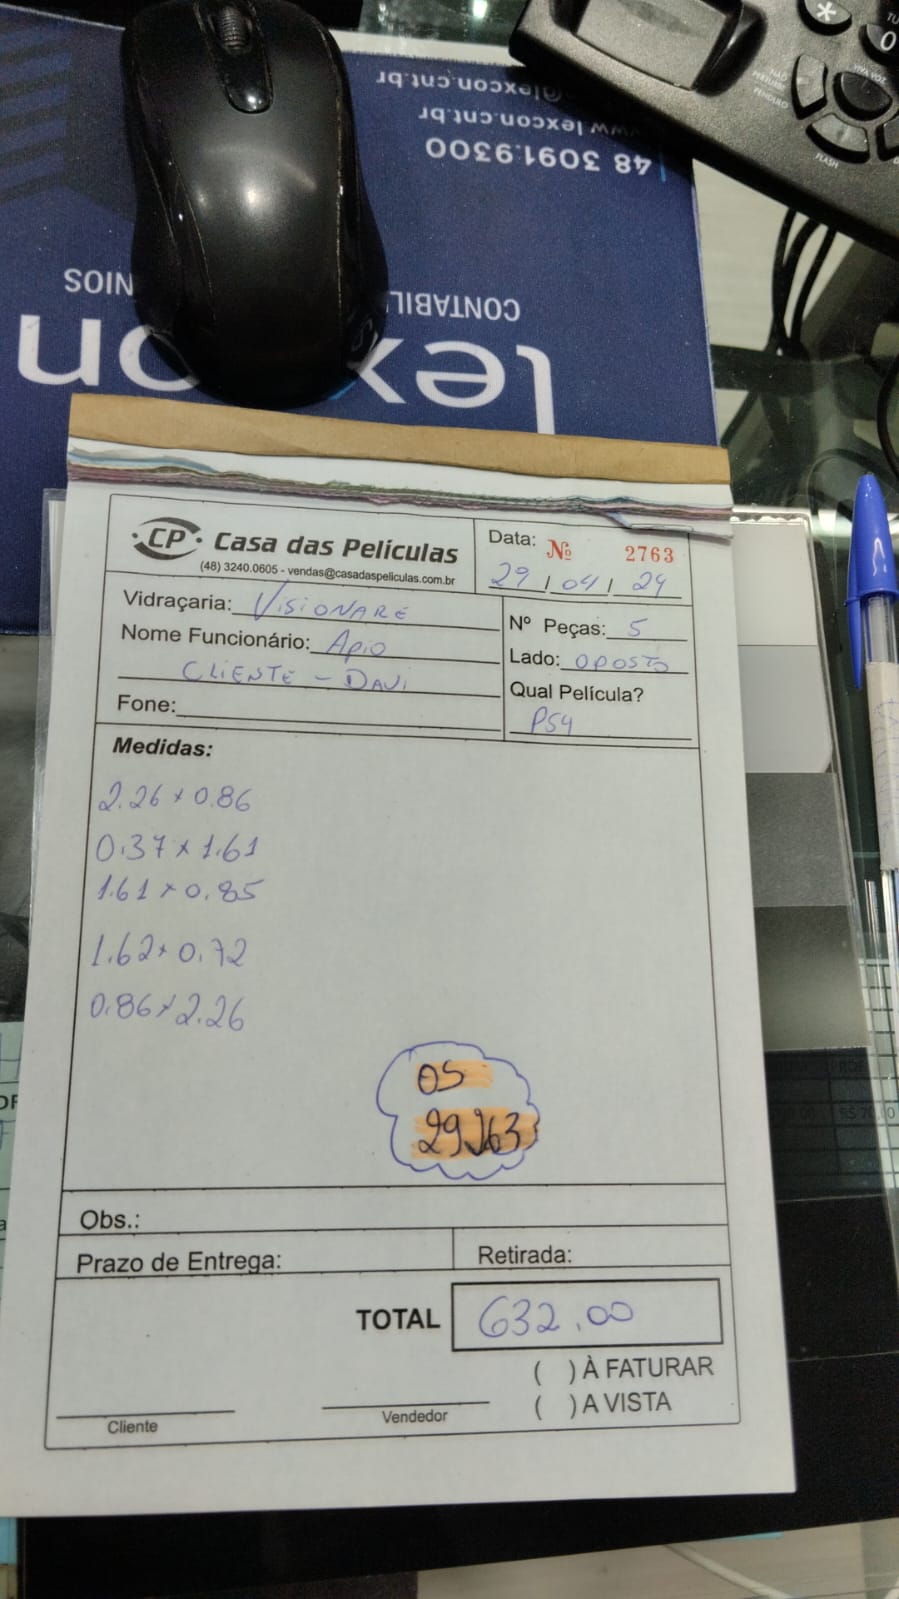 @lexcon.cnt.br
www.lexcon.cnt.br
48 3091.9300
CONTABIL
NIOS
lex on
*
0
NÃO PERTURBE
VIVA VOZ
FLASH
CP Casa das Películas
(48) 3240.0605 - vendas@casadaspeliculas.com.br
Data: Nº 2763
29 / 04 / 24
Vidraçaria: VISIONARE
Nº Peças: 5
Nome Funcionário: Apio
Lado: OPOSTO
CLIENTE - DAVI
Qual Película?
Fone:
PS4
Medidas:
2.26 x 0.86
0.37 x 1.61
1.61 x 0.85
1.62 x 0.72
0.86 x 2.26
OS
Obs.:
Prazo de Entrega:
Retirada:
TOTAL 632.00
( ) À FATURAR
( ) A VISTA
Cliente
Vendedor